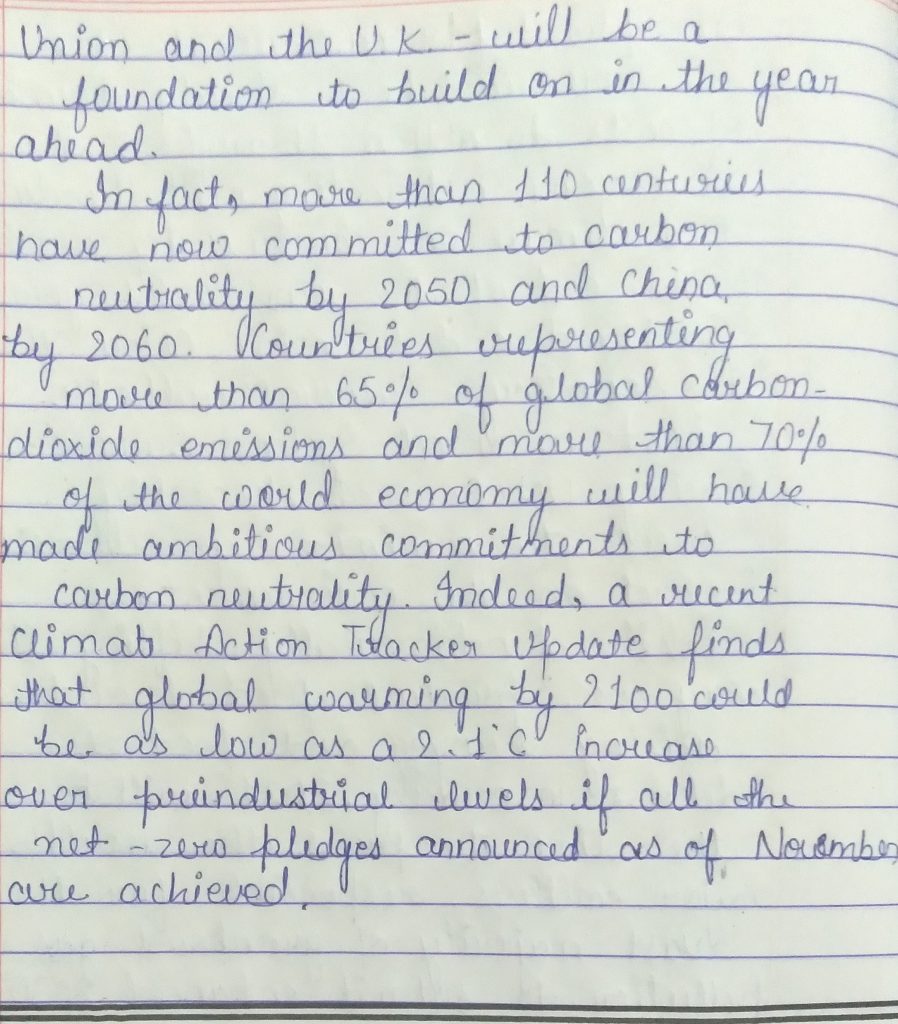 Union and the U.K. - will be a
foundation to build on in the year
ahead.
In fact, more than 110 centuries
have now committed to carbon
neutrality by 2050 and China
by 2060. Countries representing
more than 65% of global carbon-
dioxide emissions and more than 70%
of the world economy will have
made ambitious commitments to
carbon neutrality. Indeed, a recent
Climat Action Tracker Update finds
that global warming by 2100 could
be as low as a 2.1°C increase
over preindustrial levels if all the
net-zero pledges announced as of November
are achieved.